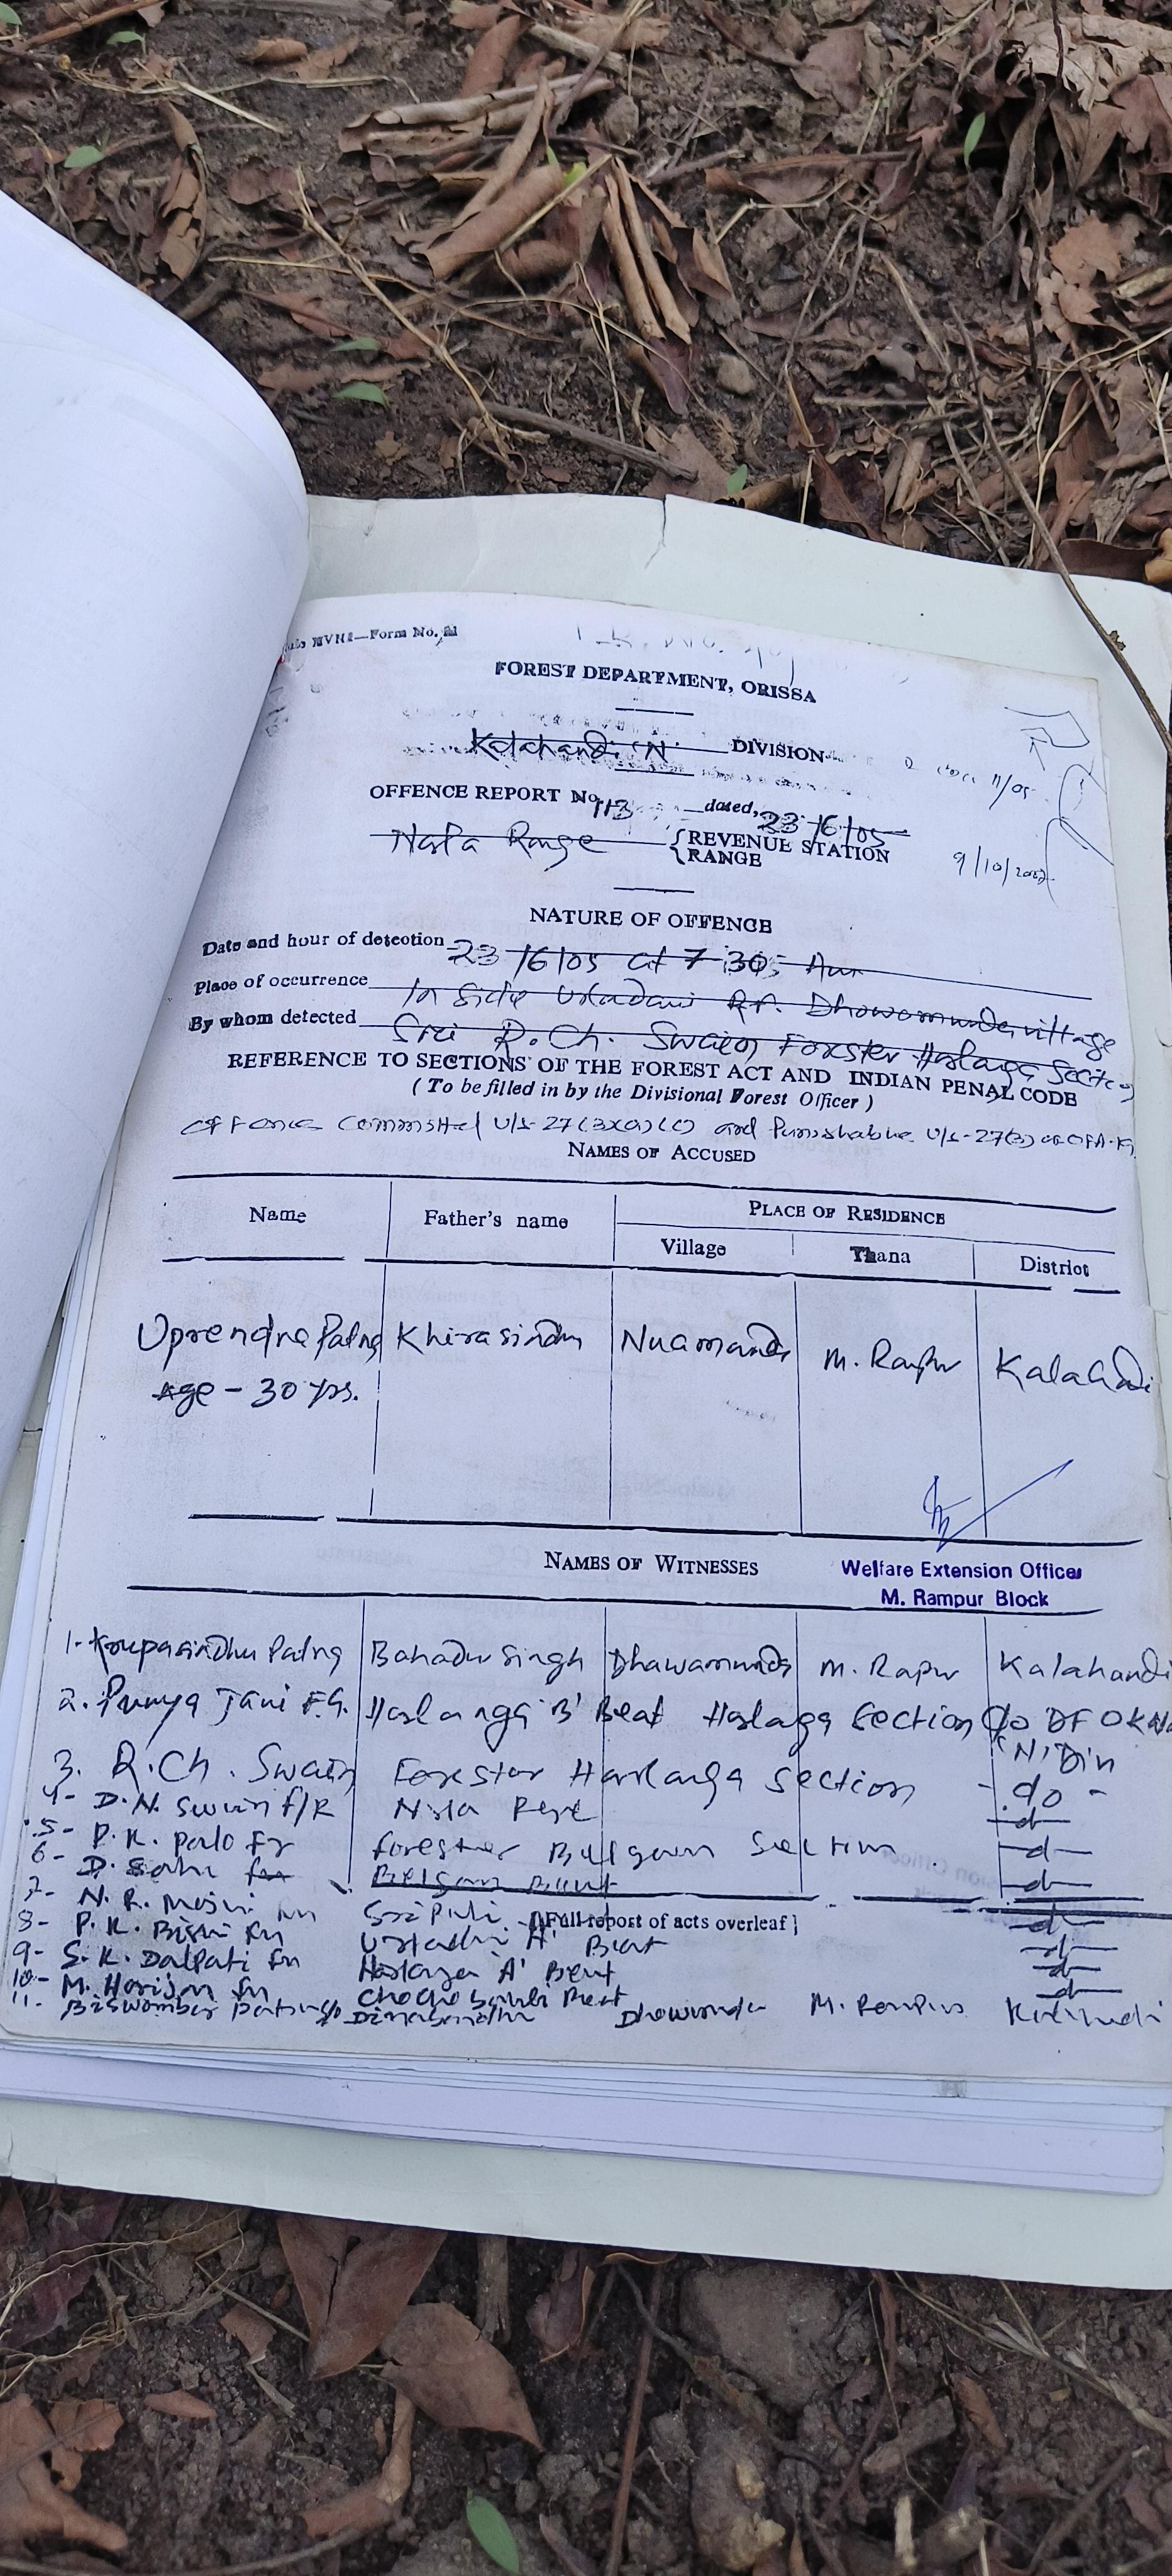 Form No.
FOREST DEPARTMENT, ORISSA
Kalahandi N. DIVISION
OFFENCE REPORT No. 113 dated, 23/6/05
Narla Range {REVENUE STATION
{RANGE
9/10/2002
NATURE OF OFFENCE
Date and hour of detection 23/6/05 at 7:30 Am
Place of occurrence In side Uladani R.F. Dhowamunda village
By whom detected Sri R.Ch. Swain Forester Harlanga Section
REFERENCE TO SECTIONS OF THE FOREST ACT AND INDIAN PENAL CODE
( To be filled in by the Divisional Forest Officer )
Offence Committed U/s-27(3)(a)(c) and Punishable U/s-27(3) of OFA
NAMES OF ACCUSED
Name Father's name PLACE OF RESIDENCE
Village Thana District
Uprendra Patra Khirasindhu Nuamunda M. Rapur Kalahandi
Age - 30 yrs.
NAMES OF WITNESSES
Welfare Extension Officer
M. Rampur Block
1- Krupasindhu Patra Bahadur Singh Dhawamunda M. Rapur Kalahandi
2. Punya Jani F.G. Harlanga 'B' Beat Harlaga Section
(N) Din
3. R.Ch. Swain Forester Harlanga Section - do -
4- D.N. Swain f/R Narla
5- P.K. Forester Belgaon Section
6- D. Sahu Belgaon Beat
7- N.R. Majhi Sripali
[Full report of acts overleaf]
8- P.K. Bishi Uladani 'A' Beat
9- S.K. Dalpati Harlanga 'A' Beat
10- M. Harijan Beat
11- Biswambar Patra S/o Dinabandhu M. Rampur Kalahandi